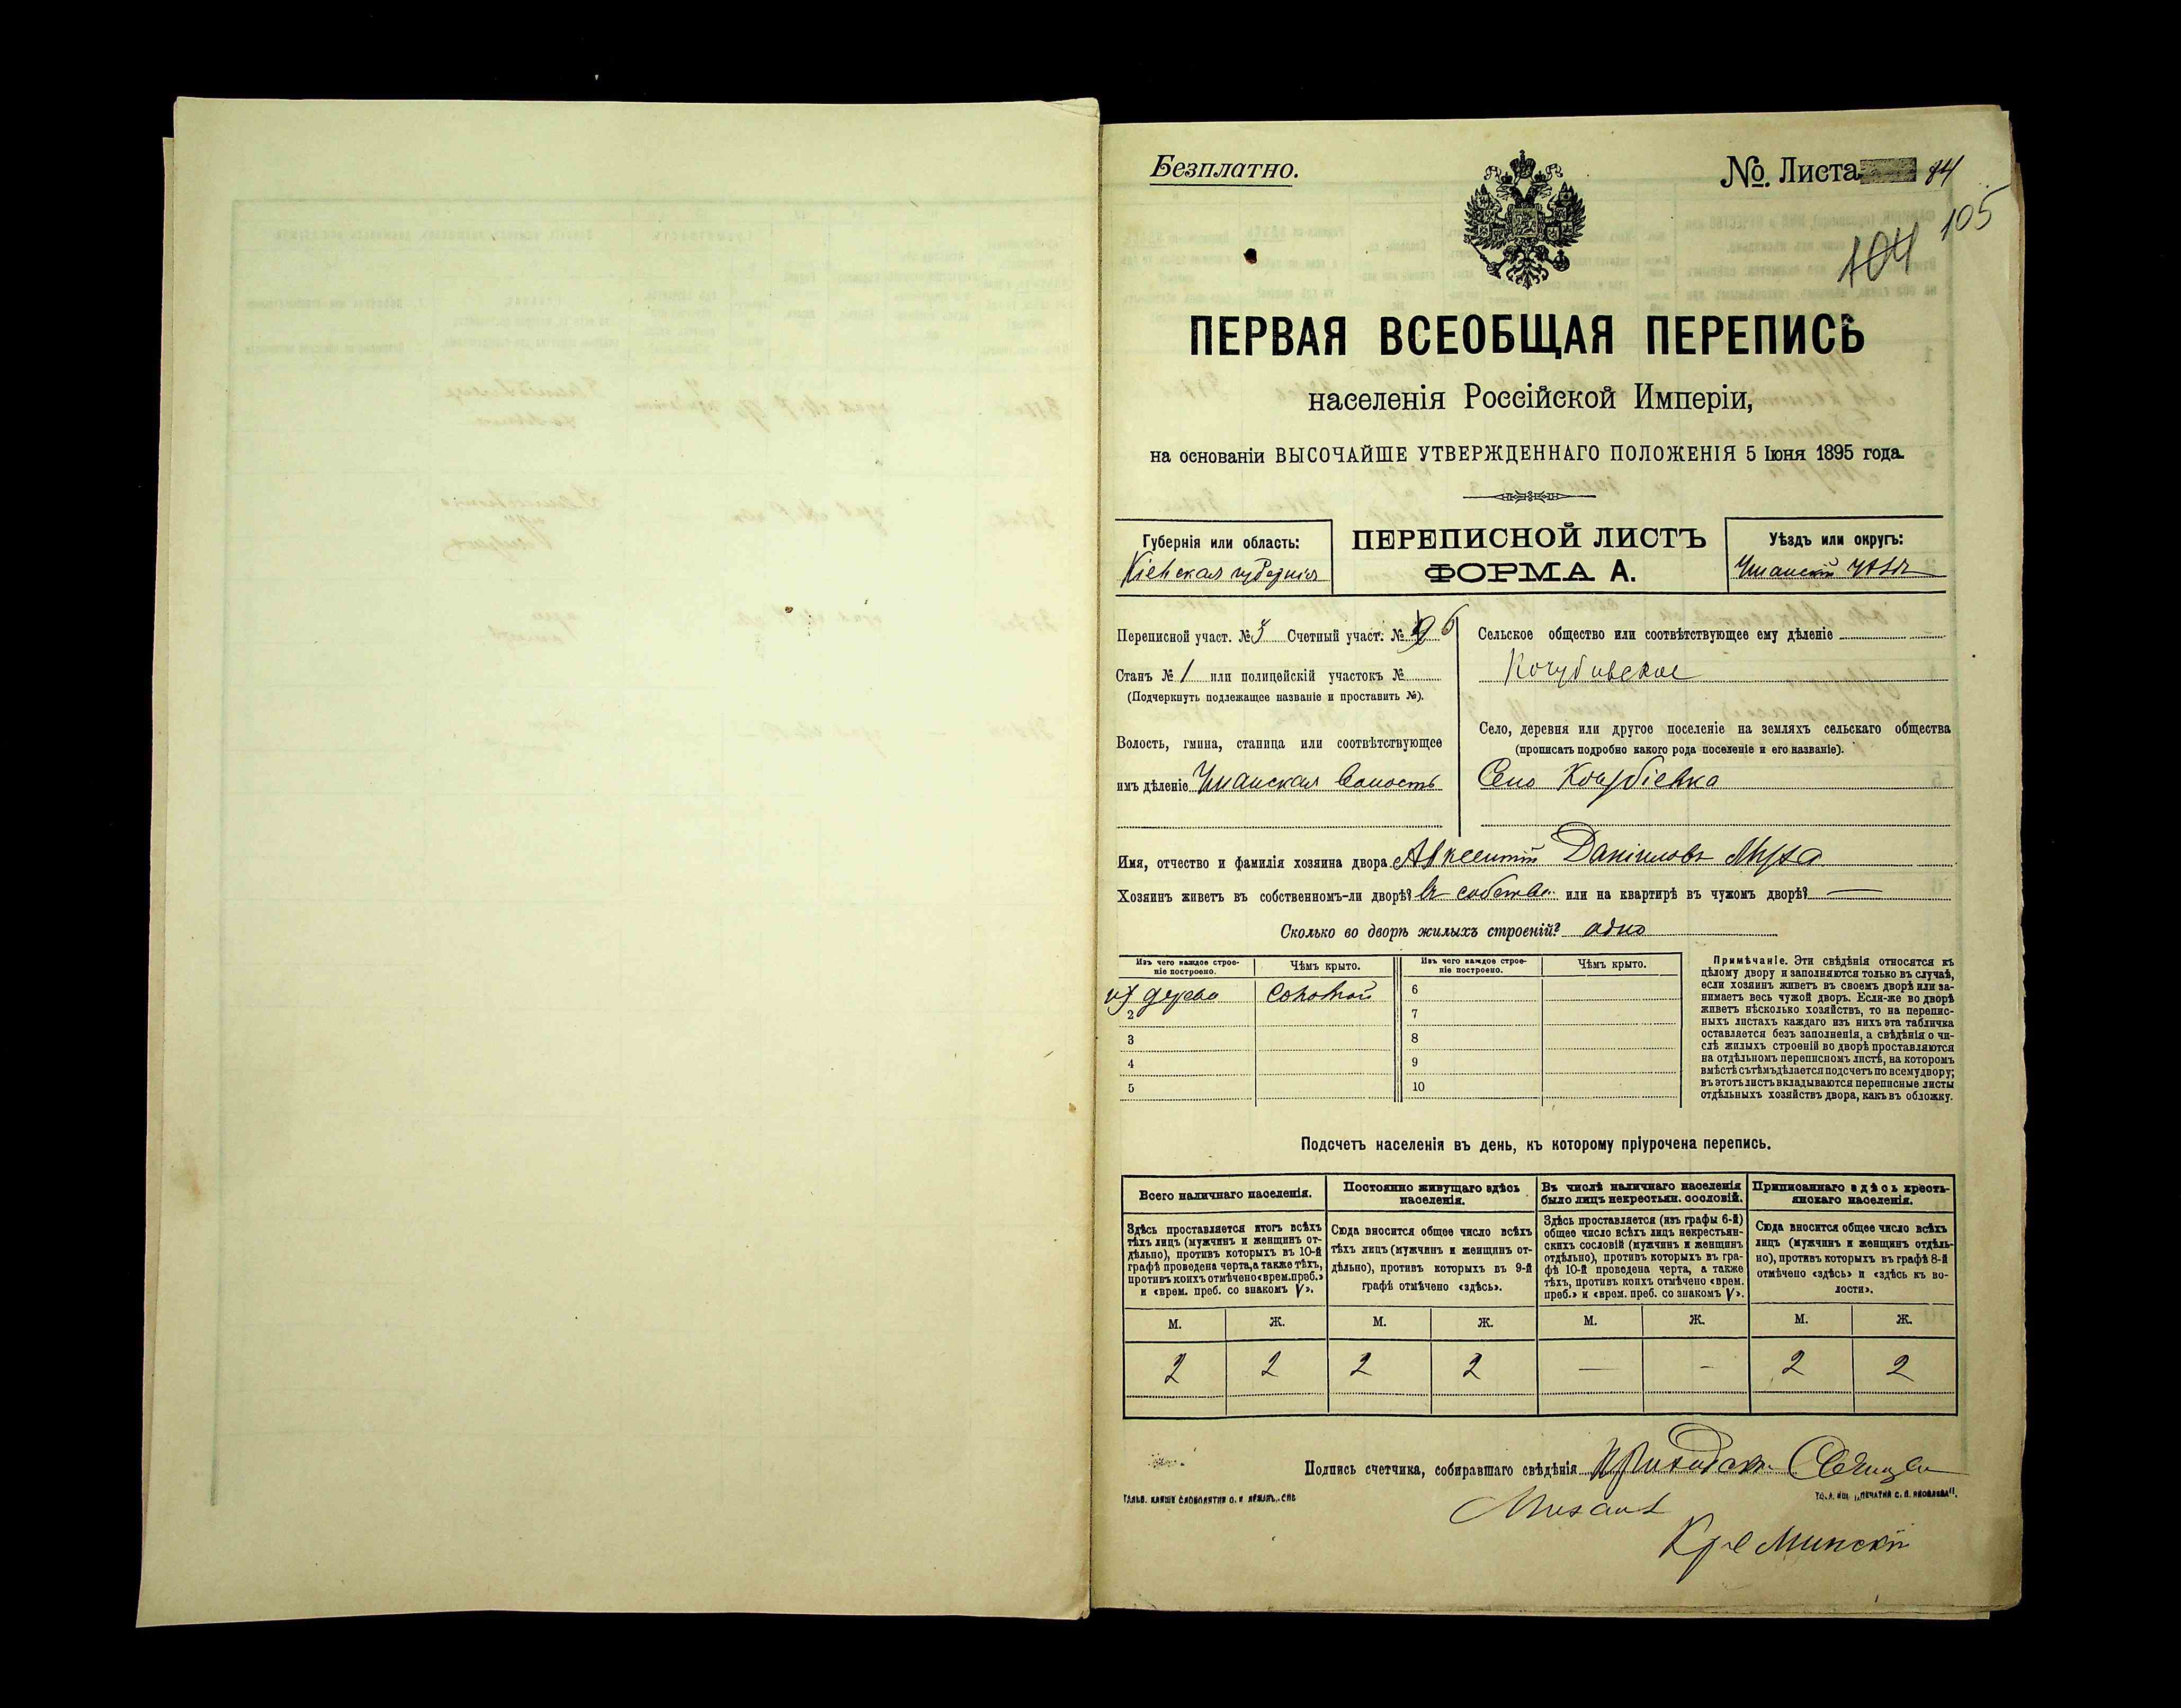 Безплатно.
№ Листа 84
105
104
ПЕРВАЯ ВСЕОБЩАЯ ПЕРЕПИСЬ
населенія Россійской Имперіи,
на основаніи ВЫСОЧАЙШЕ УТВЕРЖДЕННАГО ПОЛОЖЕНІЯ 5 Іюня 1895 года.
Губернія или область:
Кіевская губернія
ПЕРЕПИСНОЙ ЛИСТЪ
ФОРМА А.
Уѣздъ или округъ:
Уманскій уѣздъ
Переписной участ. № 3 Счетный участ. № 6
Станъ № 1 или полицейскій участокъ №
(Подчеркнуть подлежащее названіе и проставить №).
Волость, гмина, станица или соотвѣтствующее
имъ дѣленіе Уманская волость
Сельское общество или соотвѣтствующее ему дѣленіе
Кочубіевское
Село, деревня или другое поселеніе на земляхъ сельскаго общества
(прописать подробно какого рода поселеніе и его названіе).
Село Кочубіевка
Имя, отчество и фамилія хозяина двора Авксентій Даніиловъ Муха
Хозяинъ живетъ въ собственномъ-ли дворѣ? въ собствен. или на квартирѣ въ чужомъ дворѣ? —
Сколько во дворѣ жилыхъ строеній? одно
Изъ чего каждое строе-
ніе построено.
Чѣмъ крыто.
Изъ чего каждое строе-
ніе построено.
Чѣмъ крыто.
из дерева соломой 6
2 7
3 8
4 9
5 10
Примѣчаніе. Эти свѣдѣнія относятся къ
цѣлому двору и заполняются только въ случаѣ,
если хозяинъ живетъ въ своемъ дворѣ или за-
нимаетъ весь чужой дворъ. Если-же во дворѣ
живетъ нѣсколько хозяйствъ, то на перепис-
ныхъ листахъ каждаго изъ нихъ эта табличка
оставляется безъ заполненія, а свѣдѣнія о чи-
слѣ жилыхъ строеній во дворѣ проставляются
на отдѣльномъ переписномъ листѣ, на которомъ
вмѣстѣ съ тѣмъ дѣлается подсчетъ по всему двору;
въ этотъ листъ вкладываются переписные листы
отдѣльныхъ хозяйствъ двора, какъ въ обложку.
Подсчетъ населенія въ день, къ которому пріурочена перепись.
Всего наличнаго населенія.
Здѣсь проставляется итогъ всѣхъ
тѣхъ лицъ (мужчинъ и женщинъ от-
дѣльно), противъ которыхъ въ 10-й
графѣ проведена черта, а также тѣхъ,
противъ коихъ отмѣчено «врем. преб.»
и «врем. преб. со знакомъ V».
Постоянно живущаго здѣсь
населенія.
Сюда вносится общее число всѣхъ
тѣхъ лицъ (мужчинъ и женщинъ от-
дѣльно), противъ которыхъ въ 9-й
графѣ отмѣчено «здѣсь».
Въ числѣ наличнаго населенія
было лицъ некрестьян. сословій.
Здѣсь проставляется (изъ графы 6-й)
общее число всѣхъ лицъ некрестьян-
скихъ сословій (мужчинъ и женщинъ
отдѣльно), противъ которыхъ въ гра-
фѣ 10-й проведена черта, а также
тѣхъ, противъ коихъ отмѣчено «врем.
преб.» и «врем. преб. со знакомъ V».
Приписаннаго здѣсь кресть-
янскаго населенія.
Сюда вносится общее число всѣхъ
лицъ (мужчинъ и женщинъ отдѣль-
но), противъ которыхъ въ графѣ 8-й
отмѣчено «здѣсь» и «здѣсь къ во-
лости».
М. Ж. М. Ж. М. Ж. М. Ж.
2 2 2 2 — - 2 2
Подпись счетчика, собиравшаго свѣдѣнія
Михаил
Кременскій